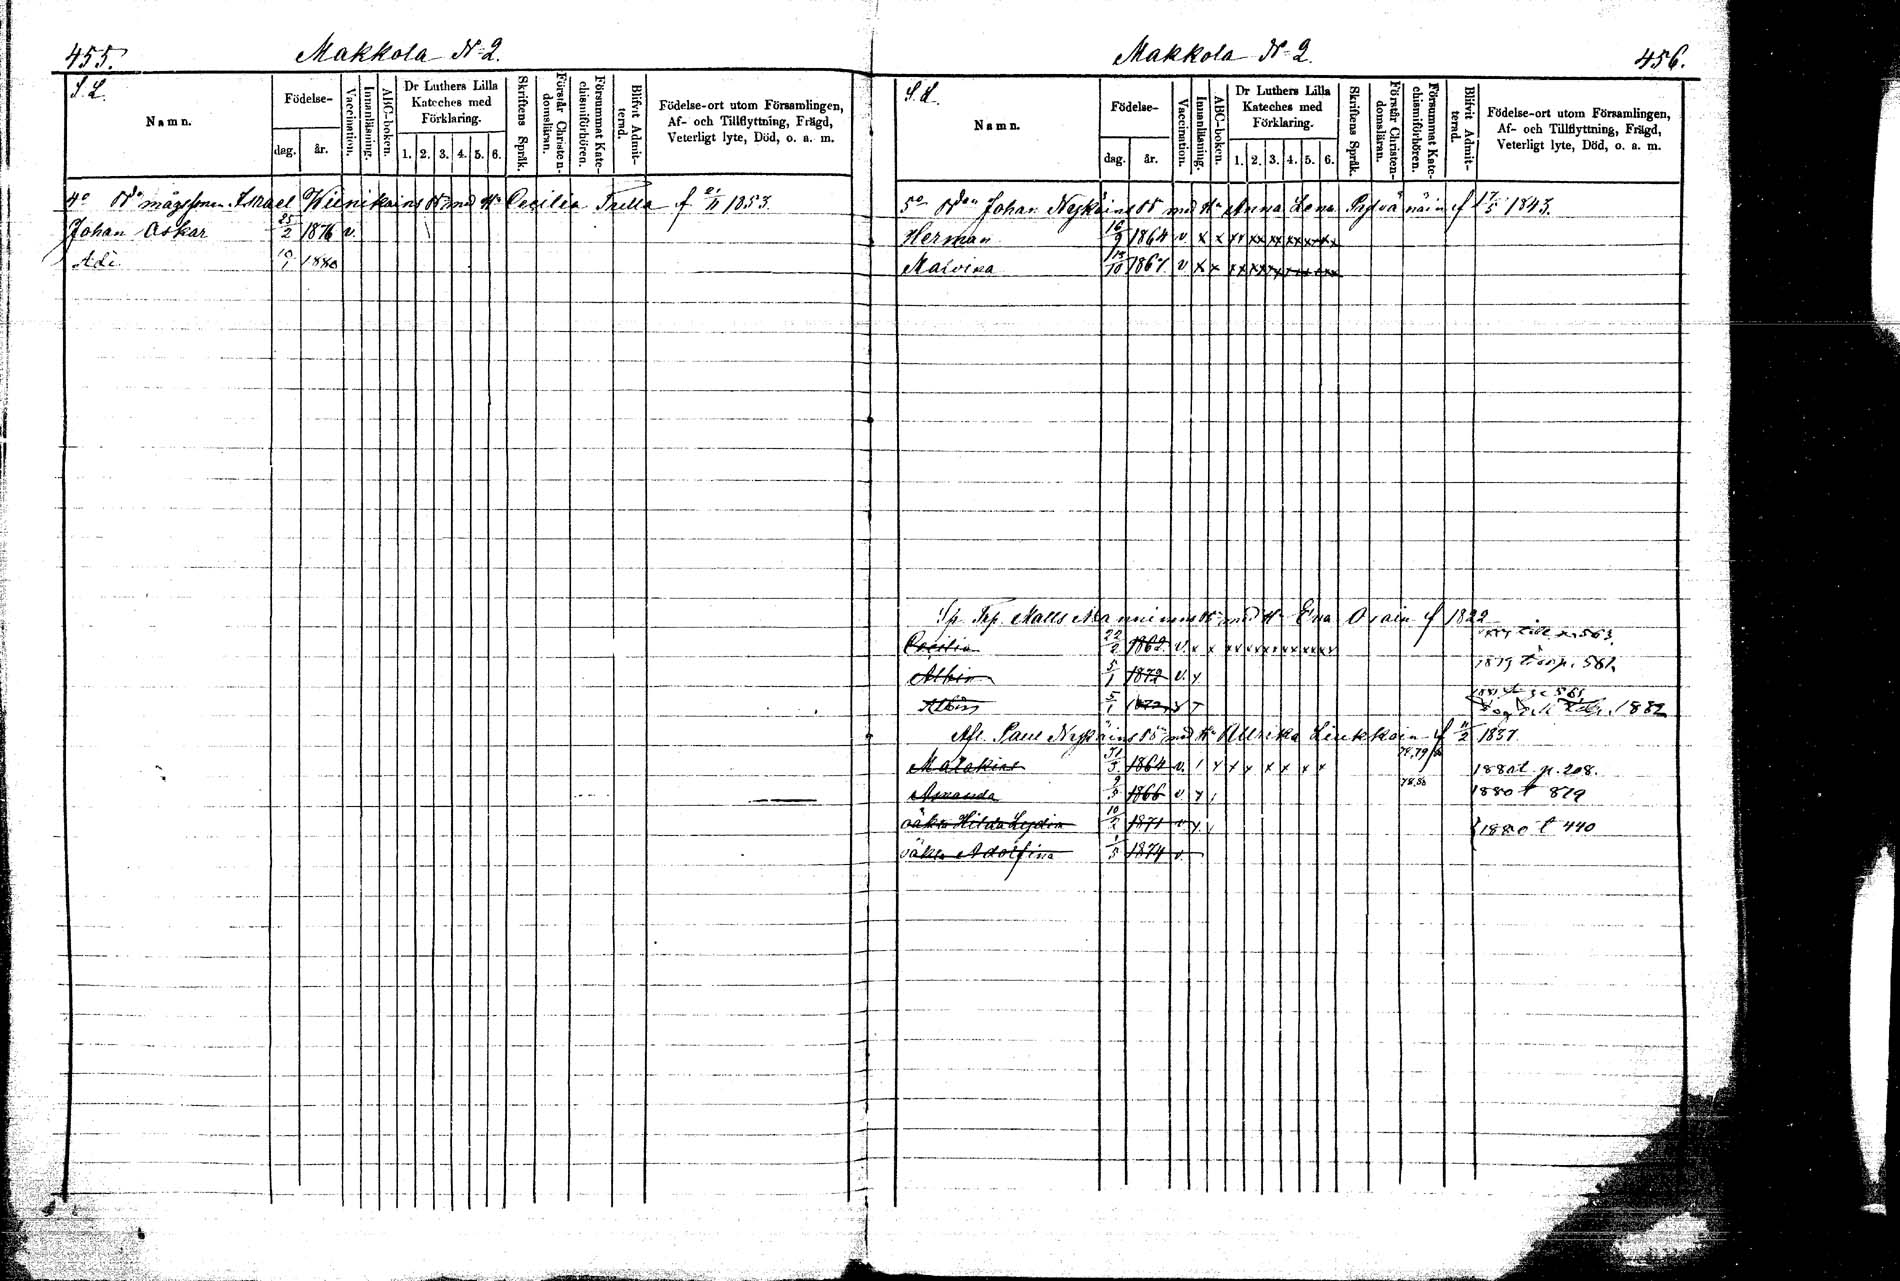 455. Makkola N=2.
S. L.
Namn.
Födelse-
dag. år.
Vaccination.
Innanläsning.
ABC-boken.
Dr Luthers Lilla Kateches med Förklaring.
1. 2. 3. 4. 5. 6.
Skriftens Språk.
Förstår Christendomsläran.
Försummat Katechismiförhören.
Blifvit Admitterad.
Födelse-ort utom Församlingen,
Af- och Tillflyttning, Frägd,
Veterligt lyte, Död, o. a. m.
4o mågssonen Israel Wiinikains med Hu Cecilia f 21/11 1853.
Johan Oskar 25/2 1876 v.
Adi 10/1 1880
Makkola N=2. 456.
S. L.
Namn.
Födelse-
dag. år.
Vaccination.
Innanläsning.
ABC-boken.
Dr Luthers Lilla Kateches med Förklaring.
1. 2. 3. 4. 5. 6.
Skriftens Språk.
Förstår Christendomsläran.
Försummat Katechismiförhören.
Blifvit Admitterad.
Födelse-ort utom Församlingen,
Af- och Tillflyttning, Frägd,
Veterligt lyte, Död, o. a. m.
5o Johan Nykäins med Hu Anna Lena f 17/5 1843.
Herman 16/9 1864 v x x xx xx xx xx xx xx
Malvina 1867. v x x xx xx xx xx xx xx
Matts Manninens med Hu Eva f 1822
Cecilia 22/2 1862. v. x x xx xx xx xx xx xx p. 563.
Albin 5/1 1872 v. x 1879 p. 581.
Albin 5/1 1872 1882
Afl. Paul Nykäins med Hu Ullrika Liukkoin f 11/2 1837.
Malakias 31/3 1864 v. x x x x x x 78,79 1880 t p. 208.
Amanda 9/5 1866 v 78,80 1880 t 879
oäkta Hilda Lydia 10/2 1871 v 1880 t 440
oäkta Adolfina 1/5 1874 v.